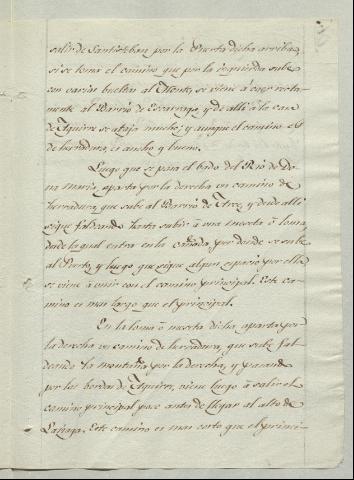 salir de Santisteban por la Puerta dicha arriba,
si se toma el camino que por la izquierda sube
con varias bueltas al Monte, se viene á caer recta-
mente al Barrio de Escarraga, y de alli á la casa
de Aguirre se ataja mucho; y aunque el camino es
de herradura, es ancho y bueno.
Luego que se pasa el bado del Rio de Do-
na maria, aparta por la derecha un camino de
herradura, que sube al Barrio de Arce, y desde alli
sigue faldeando hasta subir á una meseta ó loma,
desde la qual entra en la cañada, por donde se sube
al Puerto, y luego que sigue algun espacio por ella
se viene á unir con el camino principal. Este ca-
mino es mas largo que el principal.
En la loma ó meseta dicha, aparta por
la derecha un camino de herradura, que sube fal-
deando la montaña por la derecha, y pasando
por las bordas de Aguirre, viene luego á salir el
camino principal poco antes de llegar al alto de
Este camino es mas corto que el princi-